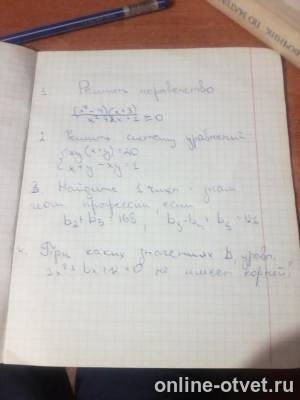 1. Решить неравенство
(x²-4)(x+3)
x²+2x+2 ≥0
2. Решить систему уравнений
{xy(x+y)=20
{x+y-xy=1
3. Найдите 1 член и знам.
геом прогрессии если
b₂+b₅=168, b₃-b₄+
4. При каких значениях b, уравн.
x²+bx+ =0 не имеет корней?
online-otvet.ru